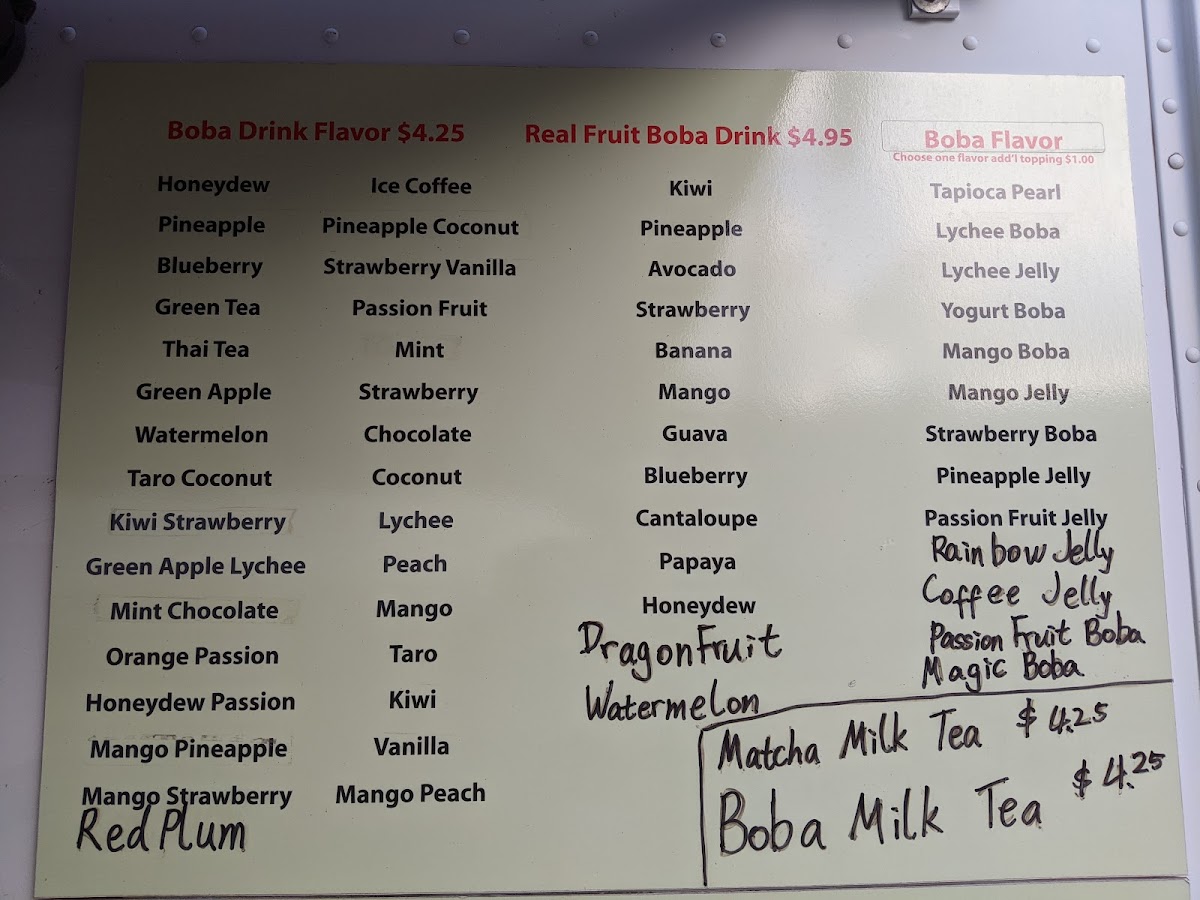 Boba Drink Flavor $4.25
Honeydew
Pineapple
Blueberry
Green Tea
Thai Tea
Green Apple
Watermelon
Taro Coconut
Kiwi Strawberry
Green Apple Lychee
Mint Chocolate
Orange Passion
Honeydew Passion
Mango Pineapple
Mango Strawberry
Red Plum
Ice Coffee
Pineapple Coconut
Strawberry Vanilla
Passion Fruit
Mint
Strawberry
Chocolate
Coconut
Lychee
Peach
Mango
Taro
Kiwi
Vanilla
Mango Peach
Real Fruit Boba Drink $4.95
Kiwi
Pineapple
Avocado
Strawberry
Banana
Mango
Guava
Blueberry
Cantaloupe
Papaya
Honeydew
DragonFruit
Watermelon
Boba Flavor
Choose one flavor add'l topping $1.00
Tapioca Pearl
Lychee Boba
Lychee Jelly
Yogurt Boba
Mango Boba
Mango Jelly
Strawberry Boba
Pineapple Jelly
Passion Fruit Jelly
Rainbow Jelly
Coffee Jelly
Passion Fruit Boba
Magic Boba
Matcha Milk Tea $4.25
Boba Milk Tea $4.25